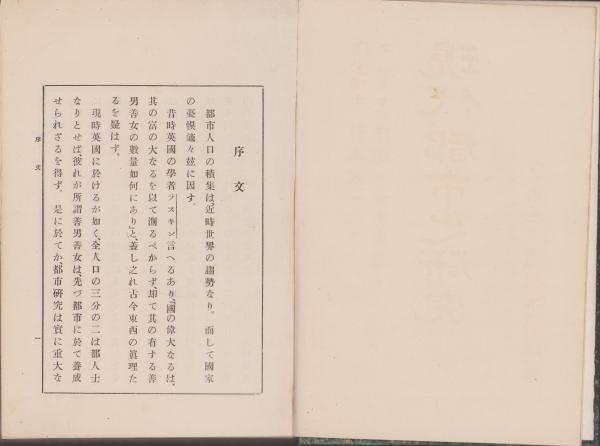 序文
都市人口の積集は、近時世界の趨勢なり。而して國家
の憂惧施々玆に因す。
昔時英國の學者ラスキン言へるあり、『國の偉大なるは、
其の富の大なるを以て測るべからず、却て其の有する善
男善女の數量如何にあり』と、蓋し之れ古今東西の眞理た
るを疑はず。
現時英國に於けるが如く、全人口の三分の二は都人士
なりとせば、彼れが所謂善男善女は、先づ都市に於て養成
せられざるを得ず。是に於てか、都市研究は實に重大な
序文
一